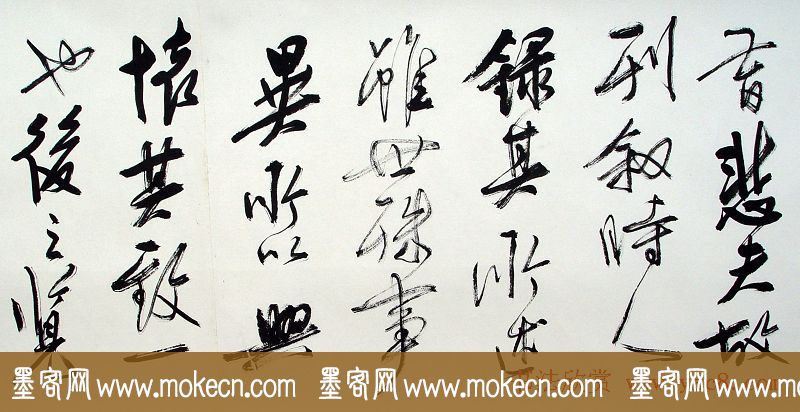 昔悲夫故
列叙時人
録其所述
雖世殊事
異所以興
懷其致一
也後之覽
墨客网 www.mokecn.com 墨客网 www.mokecn.com 墨客网 www.mokecn.com